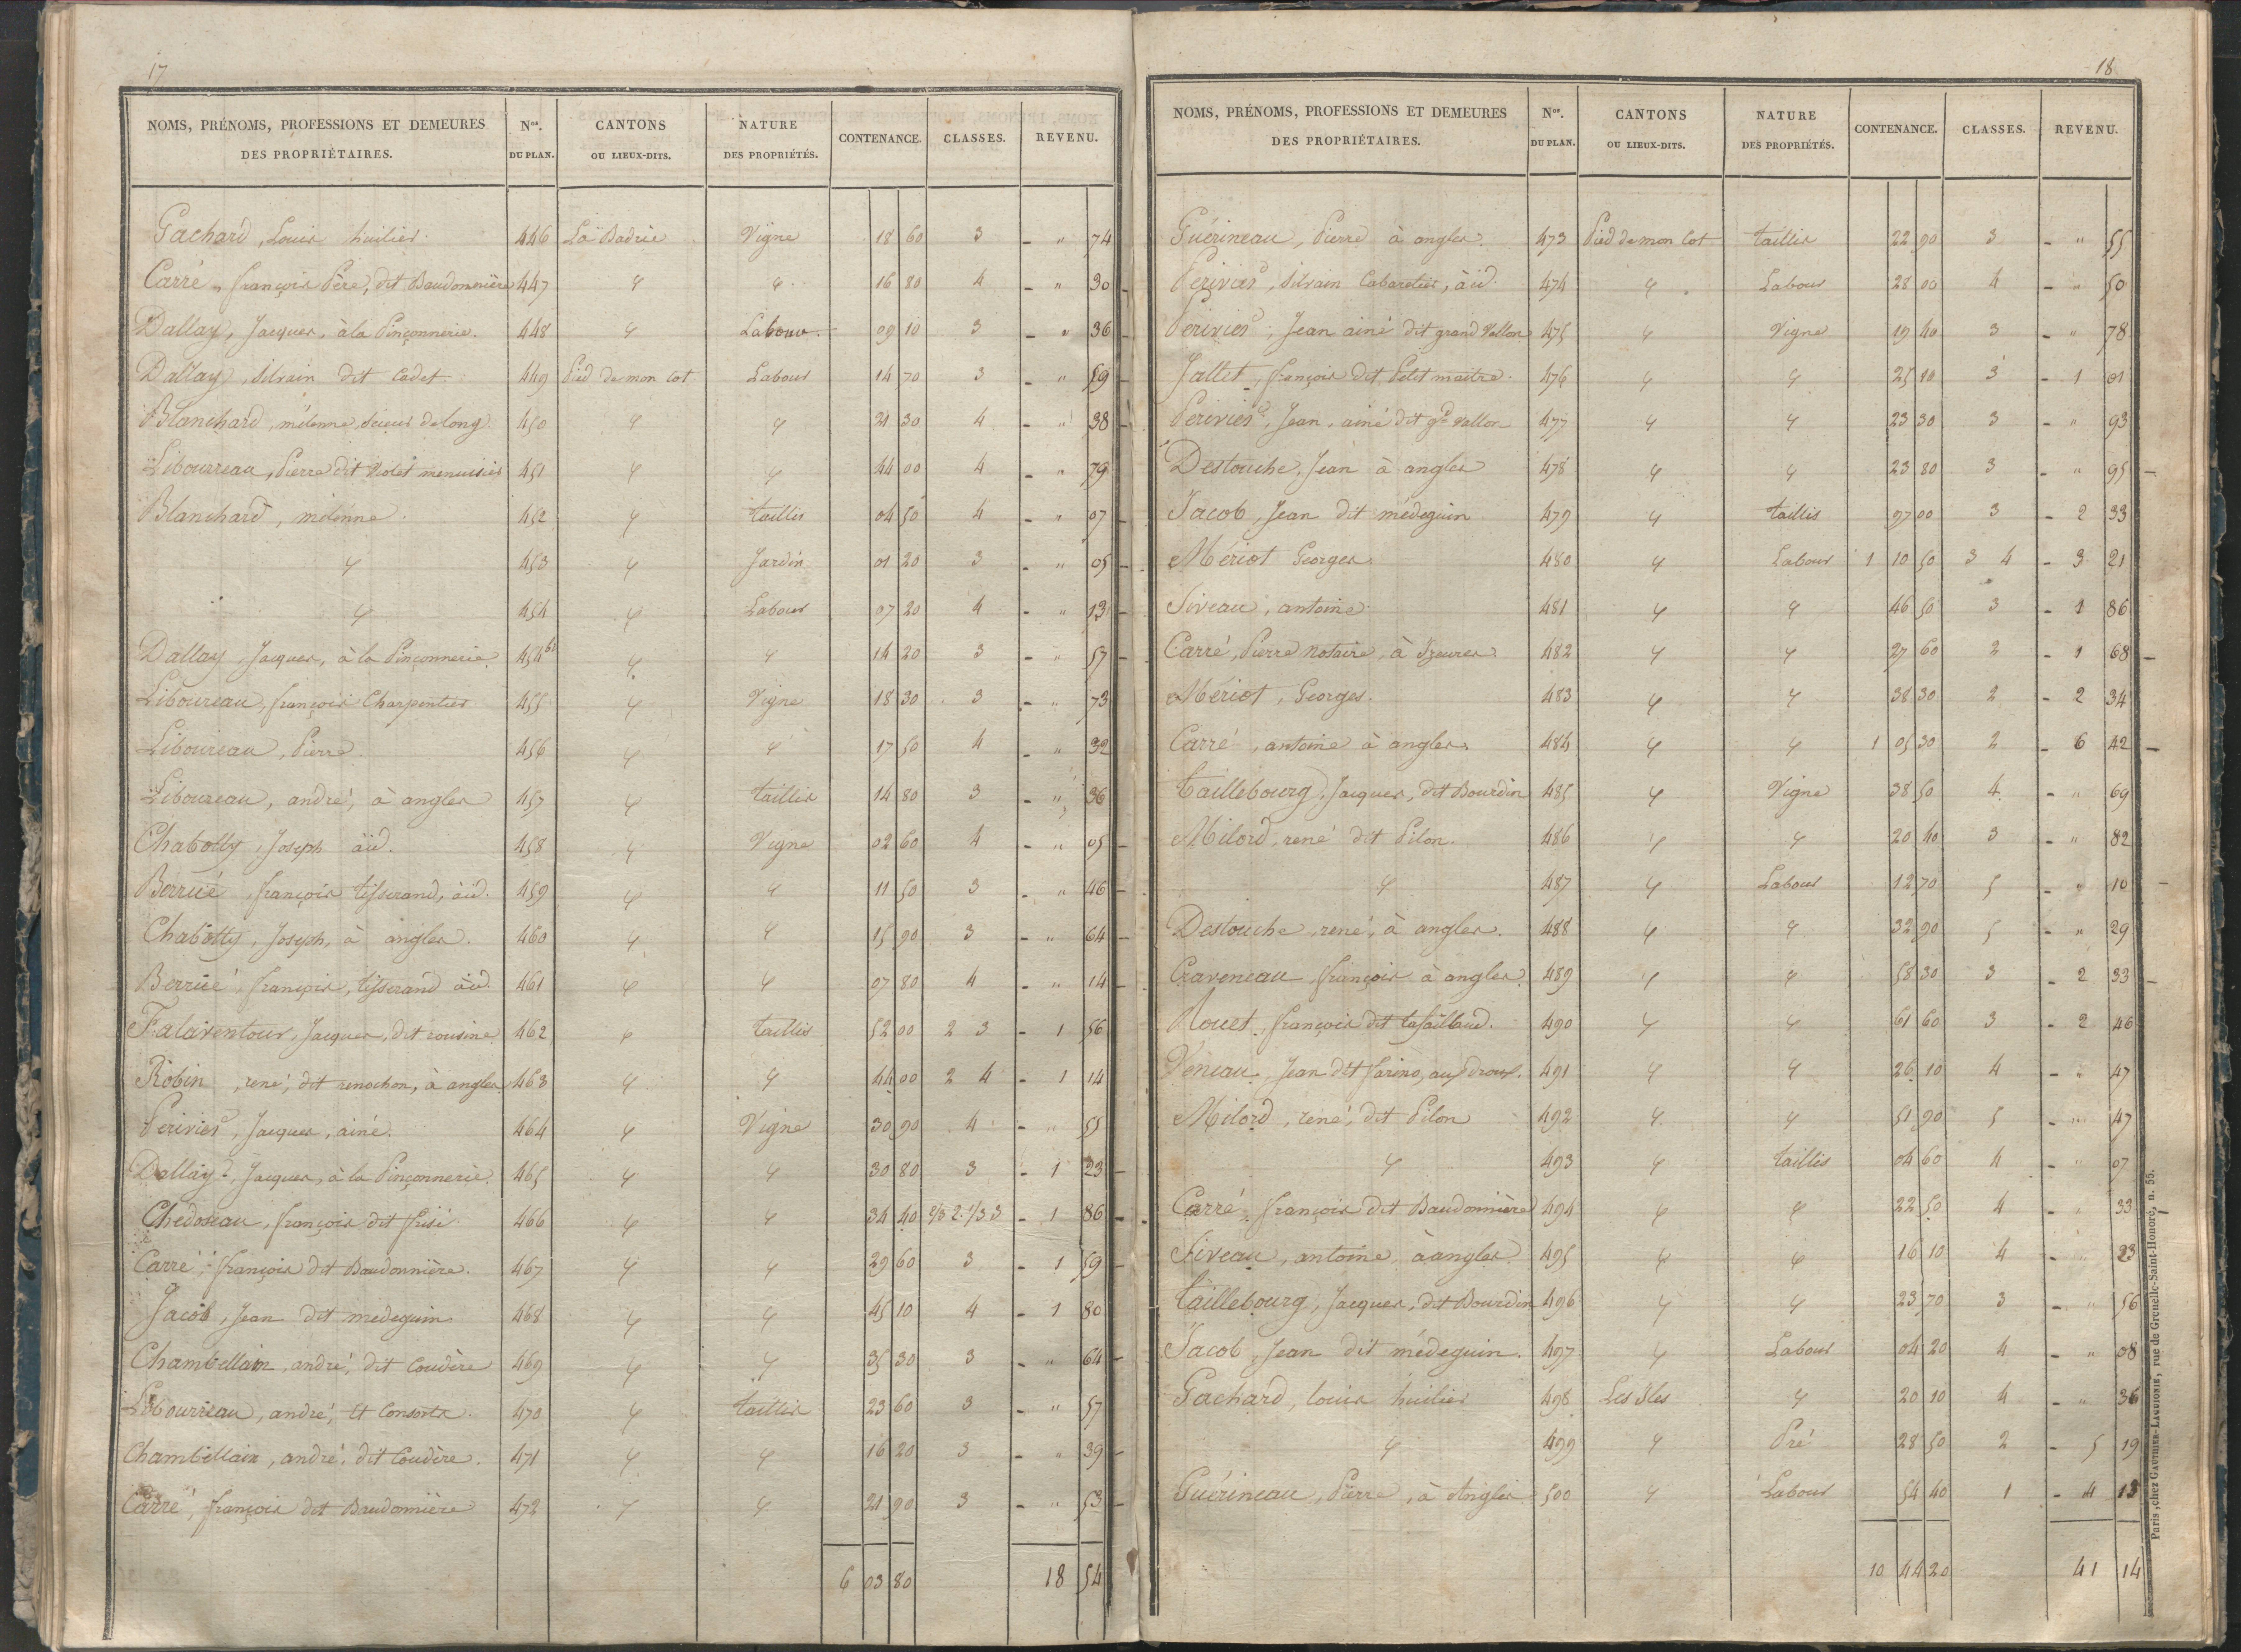 17
NOMS, PRÉNOMS, PROFESSIONS ET DEMEURES DES PROPRIÉTAIRES. Nos. DU PLAN. CANTONS OU LIEUX-DITS. NATURE DES PROPRIÉTÉS. CONTENANCE. CLASSES. REVENU.
Gachard, Louis huilier 446 La Badrie Vigne 18 60 3 - " 74
Carré, françois Père, dit Baudonnière 447 " " 16 80 4 - " 30
Dallay, Jacques, à la Pinçonnerie. 448 " Labour 09 10 3 - " 36
Dallay, silvain dit Cadet 449 Pied de mon lot Labour 14 70 3 - " 59
Blanchard, mélenne, scieur de long 450 " " 21 30 4 - " 38
Liboureau, Pierre dit Violet menuisier 451 " " 44 00 4 - " 79
Blanchard, mélenne. 452 " taillis 04 50 4 - " 07
" 453 " Jardin 01 20 3 - " 05
" 454 " Labour 07 20 4 - " 13
Dallay, Jacques, à la Pinçonnerie 454 bis " " 14 20 3 - " 57
Liboureau, françois Charpentier 455 " Vigne 18 30 3 - " 73
Liboureau, Pierre. 456 " " 17 50 4 - " 32
Liboureau, andré, à angles 457 " taillis 14 80 3 - " 36
Chabotty, Joseph àid. 458 " Vigne 02 60 4 - " 05
Berrué, françois tisserand, àid. 459 " " 11 50 3 - " 46
Chabotty, Joseph, à angles. 460 " " 15 90 3 - " 64
Berrué, françois, tisserand àid. 461 " " 07 80 4 - " 14
Falaventour, Jacques, dit cousine 462 " taillis 52 00 2 3 - 1 56
Robin, rené, dit renochon, à angles 463 " " 44 00 2 4 - 1 14
Perivier, Jacques, ainé. 464 " Vigne 30 90 4 - " 55
Dallay, Jacques, à la Pinçonnerie. 465 " " 30 80 3 - 1 23
Chedoseau, françois dit frisé 466 " " 34 40 2/3 2. 1/3 3 - 1 86
Carré, françois dit Baudonnière. 467 " " 29 60 3 - 1 59
Jacob, Jean dit medeguin 468 " " 45 10 4 - 1 80
Chambellain, andré, dit Coudère 469 " " 35 30 3 - " 64
Liboureau, andré, et Consorts. 470 " taillis 23 60 3 - " 57
Chambellain, andré, dit Coudère. 471 " " 16 20 3 - " 39
Carré, françois dit Baudonnière 472 " " 21 90 3 - " 53
6 03 80 18 54
18
NOMS, PRÉNOMS, PROFESSIONS ET DEMEURES DES PROPRIÉTAIRES. Nos. DU PLAN. CANTONS OU LIEUX-DITS. NATURE DES PROPRIÉTÉS. CONTENANCE. CLASSES. REVENU.
Guérineau, Pierre à angles. 473 Pied de mon lot taillis 22 90 3 - " 55
Perivier, silvain Cabaretier, àid. 474 " Labour 28 00 4 - " 50
Perivier, Jean ainé dit grand Vallon 475 " Vigne 19 40 3 - " 78
Jallet, françois dit Petit maitre. 476 " " 25 10 3 - 1 01
Perivier, Jean, ainé dit gd Vallon 477 " " 23 30 3 - " 93
Destouche, Jean à angles 478 " " 23 80 3 - " 95
Jacob, Jean dit médeguin 479 " taillis 97 00 3 - 2 33
Mériot Georges 480 " Labour 1 10 50 3 4 - 3 21
Siveau, antoine 481 " " 46 50 3 - 1 86
Carré, Pierre notaire, à Yzeures 482 " " 27 60 2 - 1 68
Mériot, Georges. 483 " " 38 30 2 - 2 34
Carré, antoine à angles. 484 " " 1 05 30 2 - 6 42
taillebourg, Jacques, dit Bourdin 485 " Vigne 38 50 4 - " 69
Milord, rené dit Pilon. 486 " " 20 40 3 - " 82
" 487 " Labour 12 70 5 - " 10
Destouche, rené, à angles. 488 " " 32 90 5 - " 29
Craveneau, françois à angles. 489 " " 58 30 3 - 2 33
Rouet, françois dit 490 " " 61 60 3 - 2 46
Veneau, Jean dit farino, 491 " " 26 10 4 - " 47
Milord, rené, dit Pilon 492 " " 51 90 5 - " 47
" 493 " taillis 04 60 4 - " 07
Carré, françois dit Baudonnière 494 " " 22 50 4 - " 33
Siveau, antoine, à angles. 495 " " 16 10 4 - " 23
taillebourg, Jacques, dit Bourdin 496 " " 23 70 3 - " 56
Jacob, Jean dit médeguin. 497 " Labour 04 20 4 - " 08
Gachard, louis huilier 498 Les Iles " 20 10 4 - " 36
" 499 " Pré 28 50 2 - 5 19
Guérineau, Pierre, à Angles 500 " Labour 54 40 1 - 4 13
10 44 20 41 14
Paris, chez GAUTHIER-LAGUIONIE, rue de Grenelle-Saint-Honoré, n. 55.